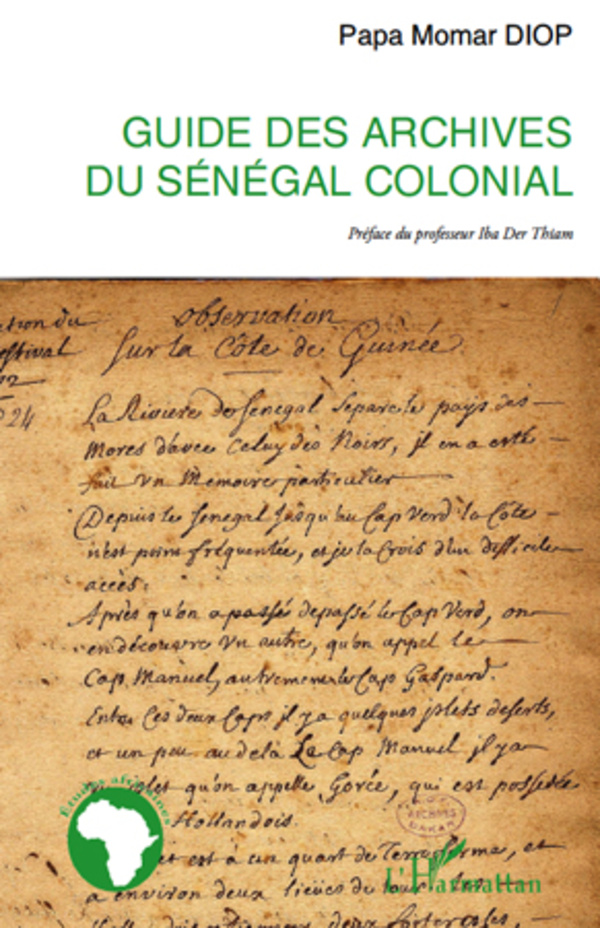 Papa Momar DIOP
GUIDE DES ARCHIVES
DU SÉNÉGAL COLONIAL
Préface du professeur Iba Der Thiam
observation
sur la Côte de Guinée
24
La Riviere de Senegal separe le pays des
Mores d'avec Celuy des Noirs, il en a esté
fait un Memoire particulier
Depuis le Senegal Jusqu'au Cap Verd la Côte
n'est point fréquentée, et je la Crois d'un difficile
accès.
Après qu'on a passé depassé le Cap Verd, on
en découvre un autre, qu'on appel le
Cap Manuel, autrement le Cap Gaspard.
Entre Ces deux Caps il y a quelques jslets deserts,
et un peu au delà Le Cap Manuel il y a
qu'on appelle Gorée, qui est possedée
Hollandois.
est à un quart de Terre ferme, et
a environ deux lieües de tour
Études africaines
ARCHIVES
DAKAR
L'Harmattan